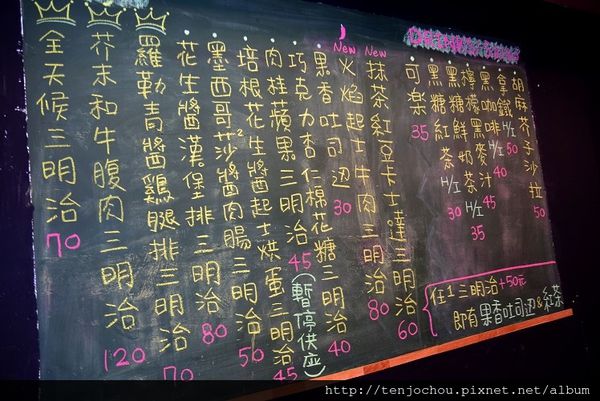 全天候三明治 70
芥末和牛腹肉三明治 120
羅勒青醬雞腿排三明治 70
花生醬漢堡排三明治 80
墨西哥莎醬肉腸三明治 50
培根花生醬起士烘蛋三明治 45
肉桂蘋果三明治 45 (暫停供應)
巧克力杏仁棉花糖三明治 40
果香吐司边 30
New
火焰起士牛肉三明治 80
New
抹茶紅豆卡士達三明治 60
可樂 35
黑糖紅茶 H/I 30
黑糖鮮奶茶 H/I 35
檸檬黑麥汁 45
黑咖啡 H/I 40
拿鐵 H/I 50
胡麻芥子沙拉 50
任1三明治+50元
即有果香吐司边&紅茶
http://tenjochou.pixnet.net/album